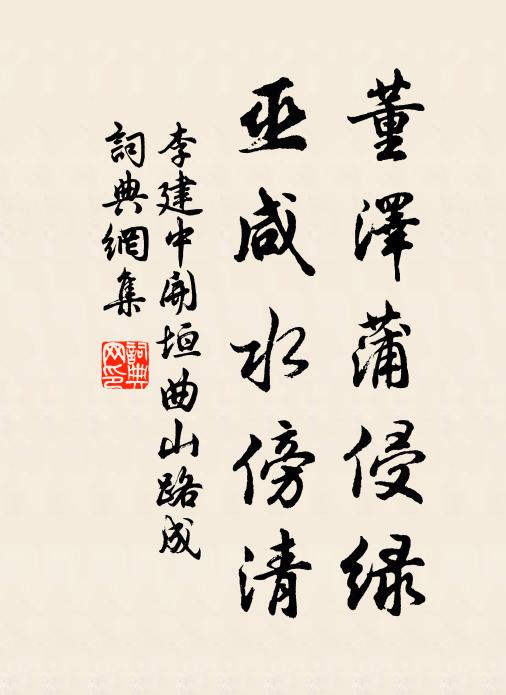 董澤蒲侵緑
巫咸水傍清
李建中開垣曲山路成
詞典網集
詞典
网印